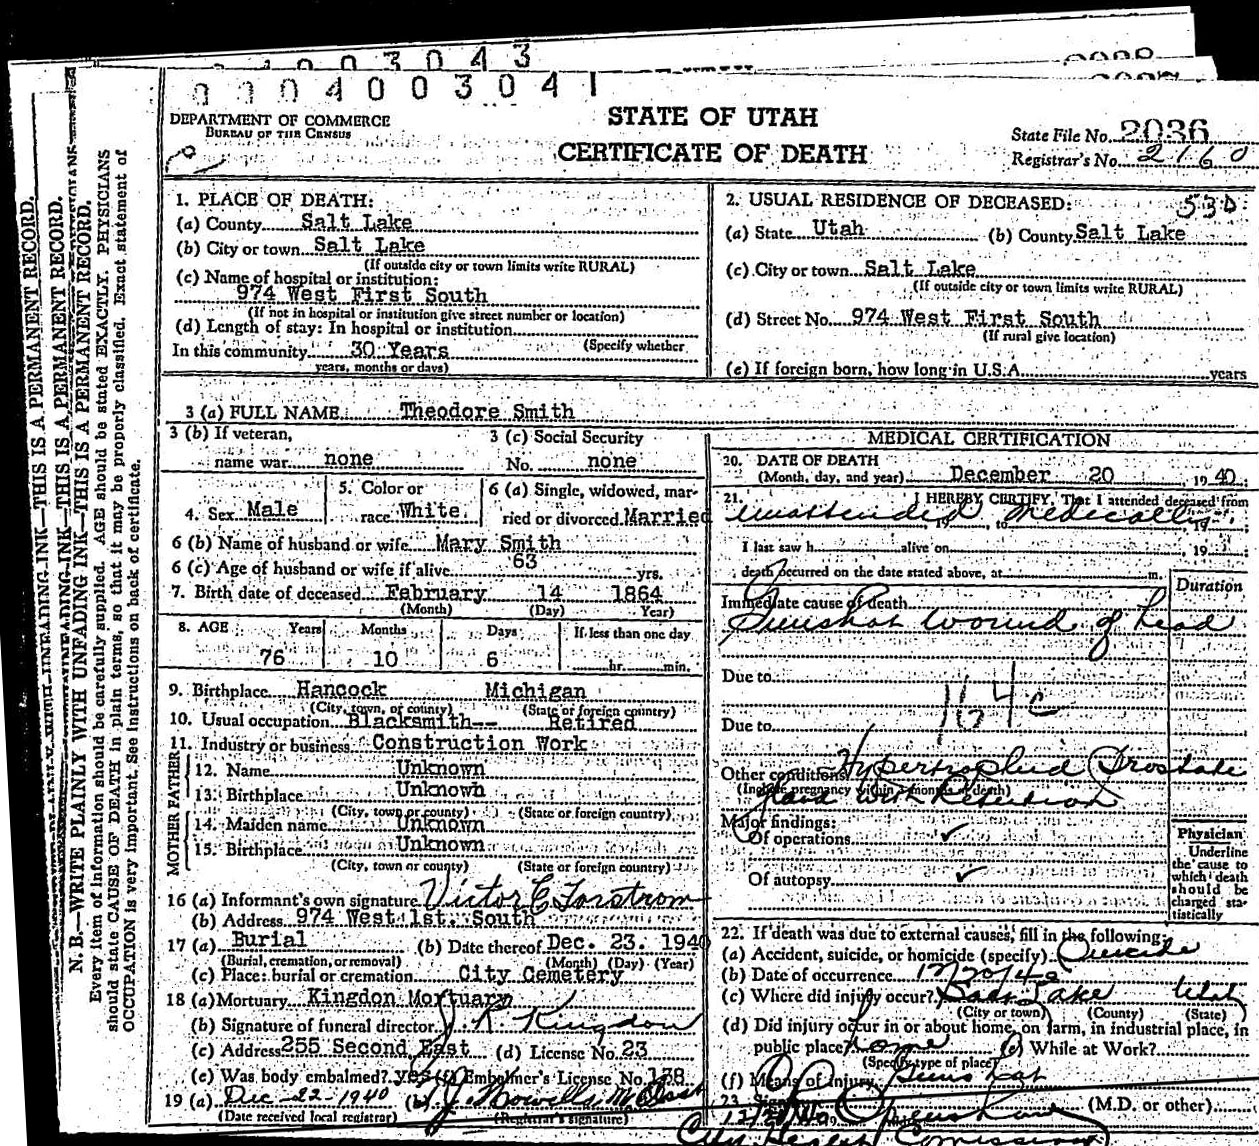 0004003043
0004003041
DEPARTMENT OF COMMERCE
BUREAU OF THE CENSUS
STATE OF UTAH
CERTIFICATE OF DEATH
State File No. 2036
Registrar's No. 2160
N. B.—WRITE PLAINLY WITH UNFADING INK—THIS IS A PERMANENT RECORD.
Every item of information should be carefully supplied. AGE should be stated EXACTLY. PHYSICIANS
should state CAUSE OF DEATH in plain terms, so that it may be properly classified. Exact statement of
OCCUPATION is very important. See instructions on back of certificate.
1. PLACE OF DEATH:
(a) County Salt Lake
(b) City or town Salt Lake
(If outside city or town limits write RURAL)
(c) Name of hospital or institution:
974 West First South
(If not in hospital or institution give street number or location)
(d) Length of stay: In hospital or institution
(Specify whether
In this community 30 Years
years, months or days)
2. USUAL RESIDENCE OF DECEASED: 530
(a) State Utah (b) County Salt Lake
(c) City or town Salt Lake
(If outside city or town limits write RURAL)
(d) Street No. 974 West First South
(If rural give location)
(e) If foreign born, how long in U.S.A. years
3 (a) FULL NAME Theodore Smith
3 (b) If veteran,
name war none
3 (c) Social Security
No. none
4. Sex Male
5. Color or
race White
6 (a) Single, widowed, mar-
ried or divorced Married
6 (b) Name of husband or wife Mary Smith
6 (c) Age of husband or wife if alive 63 yrs.
7. Birth date of deceased February 14 1864
(Month) (Day) Year)
8. AGE Years Months Days If less than one day
76 10 6 hr. min.
9. Birthplace Hancock Michigan
(City, town, or county) (State or foreign country)
10. Usual occupation Blacksmith-- Retired
11. Industry or business Construction Work
FATHER
12. Name Unknown
13. Birthplace Unknown
(City, town or county) (State or foreign country)
MOTHER
14. Maiden name Unknown
15. Birthplace Unknown
(City, town or county) (State or foreign country)
16 (a) Informant's own signature Victor E Forstrom
(b) Address 974 West 1st. South
17 (a) Burial (b) Date thereof Dec. 23. 1940
(Burial, cremation, or removal) (Month) (Day) (Year)
(c) Place: burial or cremation City Cemetery
18 (a) Mortuary Kingdon Mortuary
(b) Signature of funeral director J. R. Kingdon
(c) Address 255 Second East (d) License No. 23
(e) Was body embalmed? yes (f) Embalmer's License No. 138
19 (a) Dec-22-1940 (b)
(Date received local registrar) (Registrar's signature)
MEDICAL CERTIFICATION
20. DATE OF DEATH
(Month, day, and year) December 20, 1940.
21. I HEREBY CERTIFY, That I attended deceased from
unattended medically
19 to 19
I last saw h alive on , 19
death occurred on the date stated above, at m.
Duration
Immediate cause of death
Gunshot wound of head
Due to
164c
Due to
Other conditions Hypertrophied Prostate
(Include pregnancy within 3 months of death)
gland with Retention
Major findings:
Of operations ✓
Of autopsy ✓
Physician
Underline
the cause to
which death
should be
charged sta-
tistically
22. If death was due to external causes, fill in the following:
(a) Accident, suicide, or homicide (specify) Suicide
(b) Date of occurrence 12/20/40
(c) Where did injury occur? Salt Lake Utah
(City or town) (County) (State)
(d) Did injury occur in or about home, on farm, in industrial place, in
public place? home (e) While at Work?
(Specify type of place)
(f) Means of injury Gunshot
23. Signature (M.D. or other)
City Health Commissioner